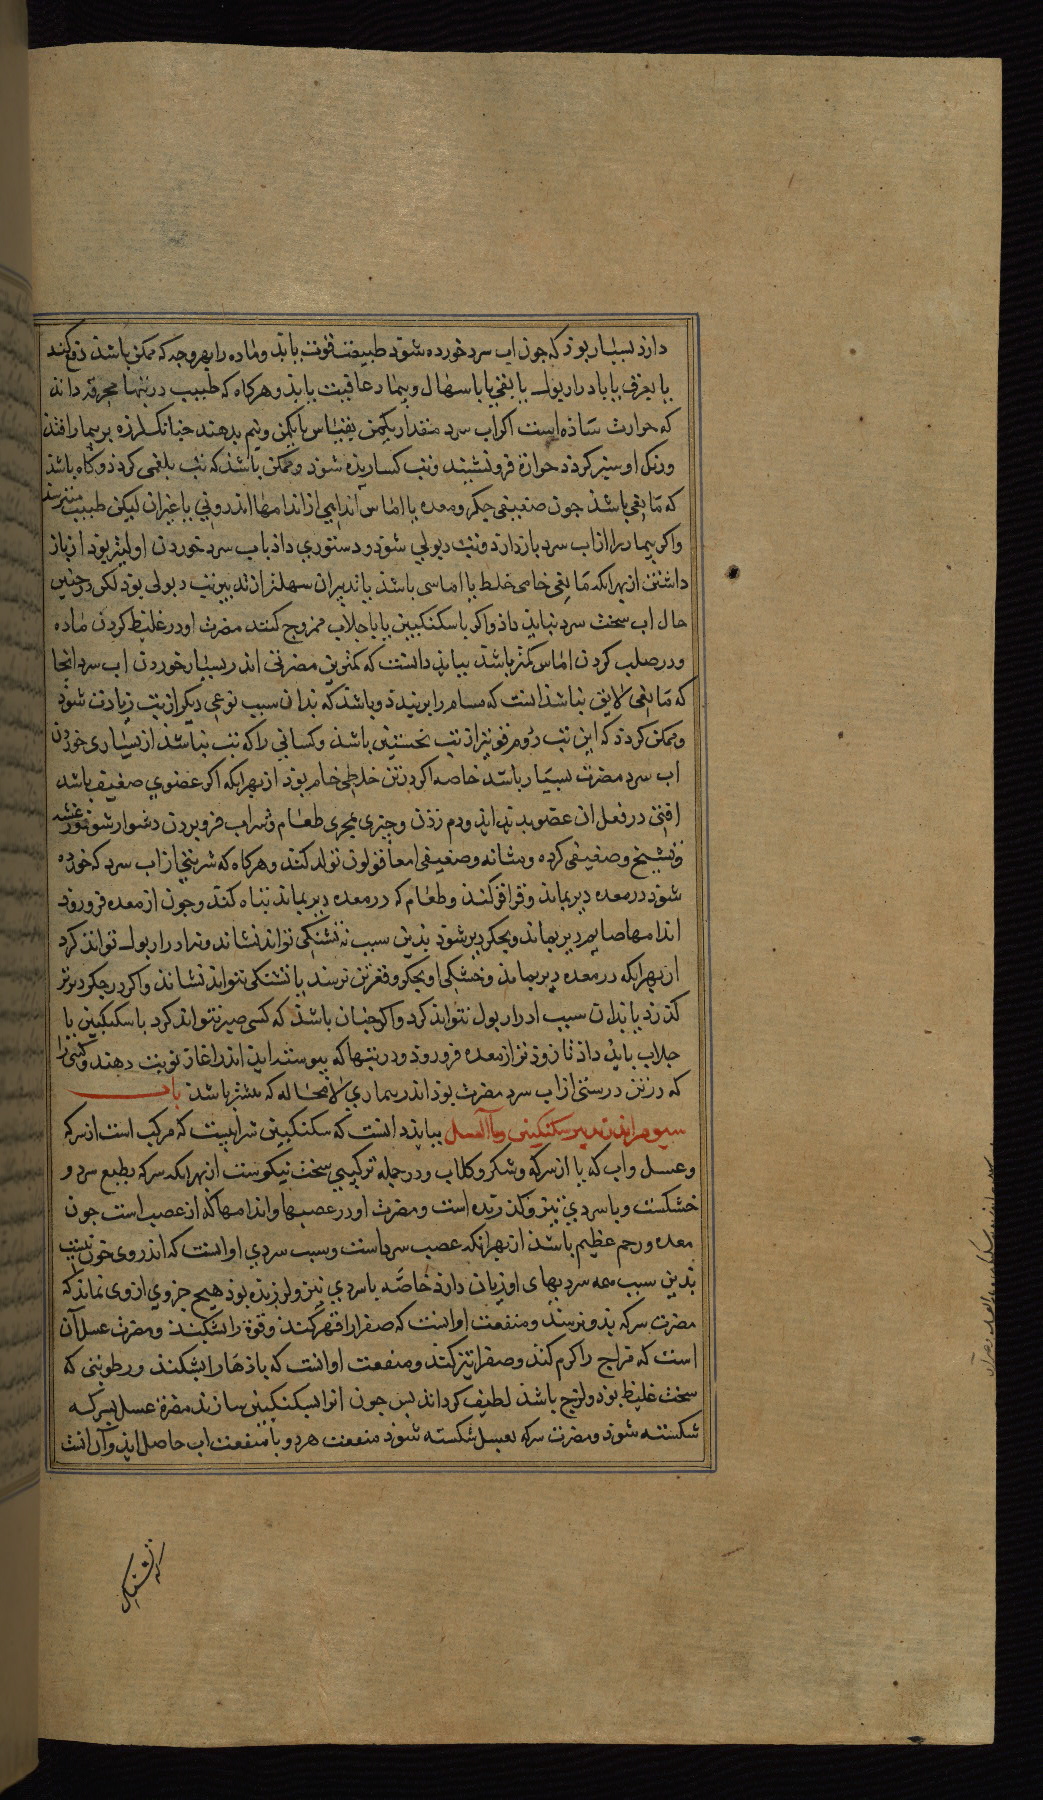 دارد بسیار بود که جون اب سرد خورده شود طبیعت قوت یابد و ماده را بهر وجه که ممکن باشد دفع کند
یا بعرق یا بادرار بول یا بقی یا باسهال و بیمار عافیت یابد و هرکاه که طبیب در تبهاء محرقه داند
که حرارت ساده است اکر اب سرد مقدار یکمن بقیاس یا یکمن و نیم بدهند جنانک لرزه بر بیمار افتد
ورنک او سبز کردد حرارة فرو نشیند و تب کساریده شود و ممکن باشد که تب بلغمی کردد و کاه باشد
که مانعی باشد جون ضعیفی جکر و معده یا اماس اندامی از اندامهاء اندرونی یا غیر ان لیکن طبیب
واکر بیمار را از اب سرد بازدارد و تب دبولی شود و دستوری داذ باب سرد خوردن اولیتر بود از باز
داشتن از بهر انکه مانعی خامی خلط یا اماسی باشد یا تدبیر ان سهلتر از تدبیر تب دبولی بود لکن در جنین
حال اب سخت سرد نباید داذ واکر باسکنکبین یا باجلاب ممزوج کنند مضرت او در غلیظ کردن ماده
ودر صلب کردن اماس کمتر باشد بباید دانست که کمترین مضرتی اندر بسیار خوردن اب سرد انجا
که مانعی لایق نباشد انست که مسام را بربندد و باشد که بدان سبب نوعی دیکر از تب زیادت شود
و ممکن کردد که این تب دوم قویتر از تب نخستین باشد و کسانی را که تب نباشد از بسیاری خوردن
اب سرد مضرت بسیار باشد خاصه اکر در تن خلطی خام بود از بهر انکه اکر عضوی ضعیف باشد
افتی در فعل ان عضو بدید اید و دم زدن و جتری مجری طعام و شراب فرو بردن دشوار شود و رعشه
و تشنج و ضعیفی کرده و مثانه و ضعیفی امعا قولون تولد کند و هرکاه که شربتی از اب سرد که خورده
شود در معده دیر بماند و قراقر کند و طعام که در معده دیر بماند تباه کند و جون از معده فرو رود
اندامها صایم دیر بماند و بجکر دیر شود بدین سبب نه تشنکی تواند نشاند و نه ادرار بول تواند کرد
از بهر انکه در معده دیر بماند و خشکی او بجکر و قعر تن نرسد یا تشنکی بتواند نشاند واکر در جکر دیرتر
کذرد یا بدان سبب ادرار بول نتواند کرد واکر جنان باشد که کسی صبر نتواند کرد باسکنکبین یا
جلاب باید داذ تا زودتر از معده فرو رود و در تبها که بیوسته اید اندر اغاز نوبت دهند و کسی را
که در تن درستی از اب سرد مضرت بود اندر بیماری لامحاله که بیشتر باشد باب
سیوم اندر تدبیر سکنکبین و ماالعسل بباید دانست که سکنکبین شرابیست که مرکب است از سرکه
و عسل و اب که یا از سرکه و شکر و کلاب و در جمله ترکیبی سخت نیکوست از بهر انکه سرکه بطبع سرد و
خشکست و با سردی تیز و کذرنده است و مضرت او در عصبها و اندامها که از عصب است جون
معده و رحم عظیم باشد از بهر انکه عصب سرد است و سبب سردی او انست که اندر وی خون نیست
بدین سبب همه سردیهای او زیان دارد خاصّه با سردی تیز و لرزنده بود هیج جزوی از وی نماند که
مضرت سرکه بدو نرسد و منفعت او انست که صفرا را قهر کند و قوة را بشکند و مضرت عسل آن
است که مزاج را کرم کند و صفرا تیز کند و منفعت او انست که باذها را بشکند و رطوبتی که
سخت غلیظ بود و لزج باشد لطیف کرداند بس جون انرا سکنکبین سازند مضرة عسل بسرکه
شکسته شود و مضرت سرکه بعسل شکسته شود منفعت هر دو با منفعت اب حاصل اید و آن انست
که تشنکی